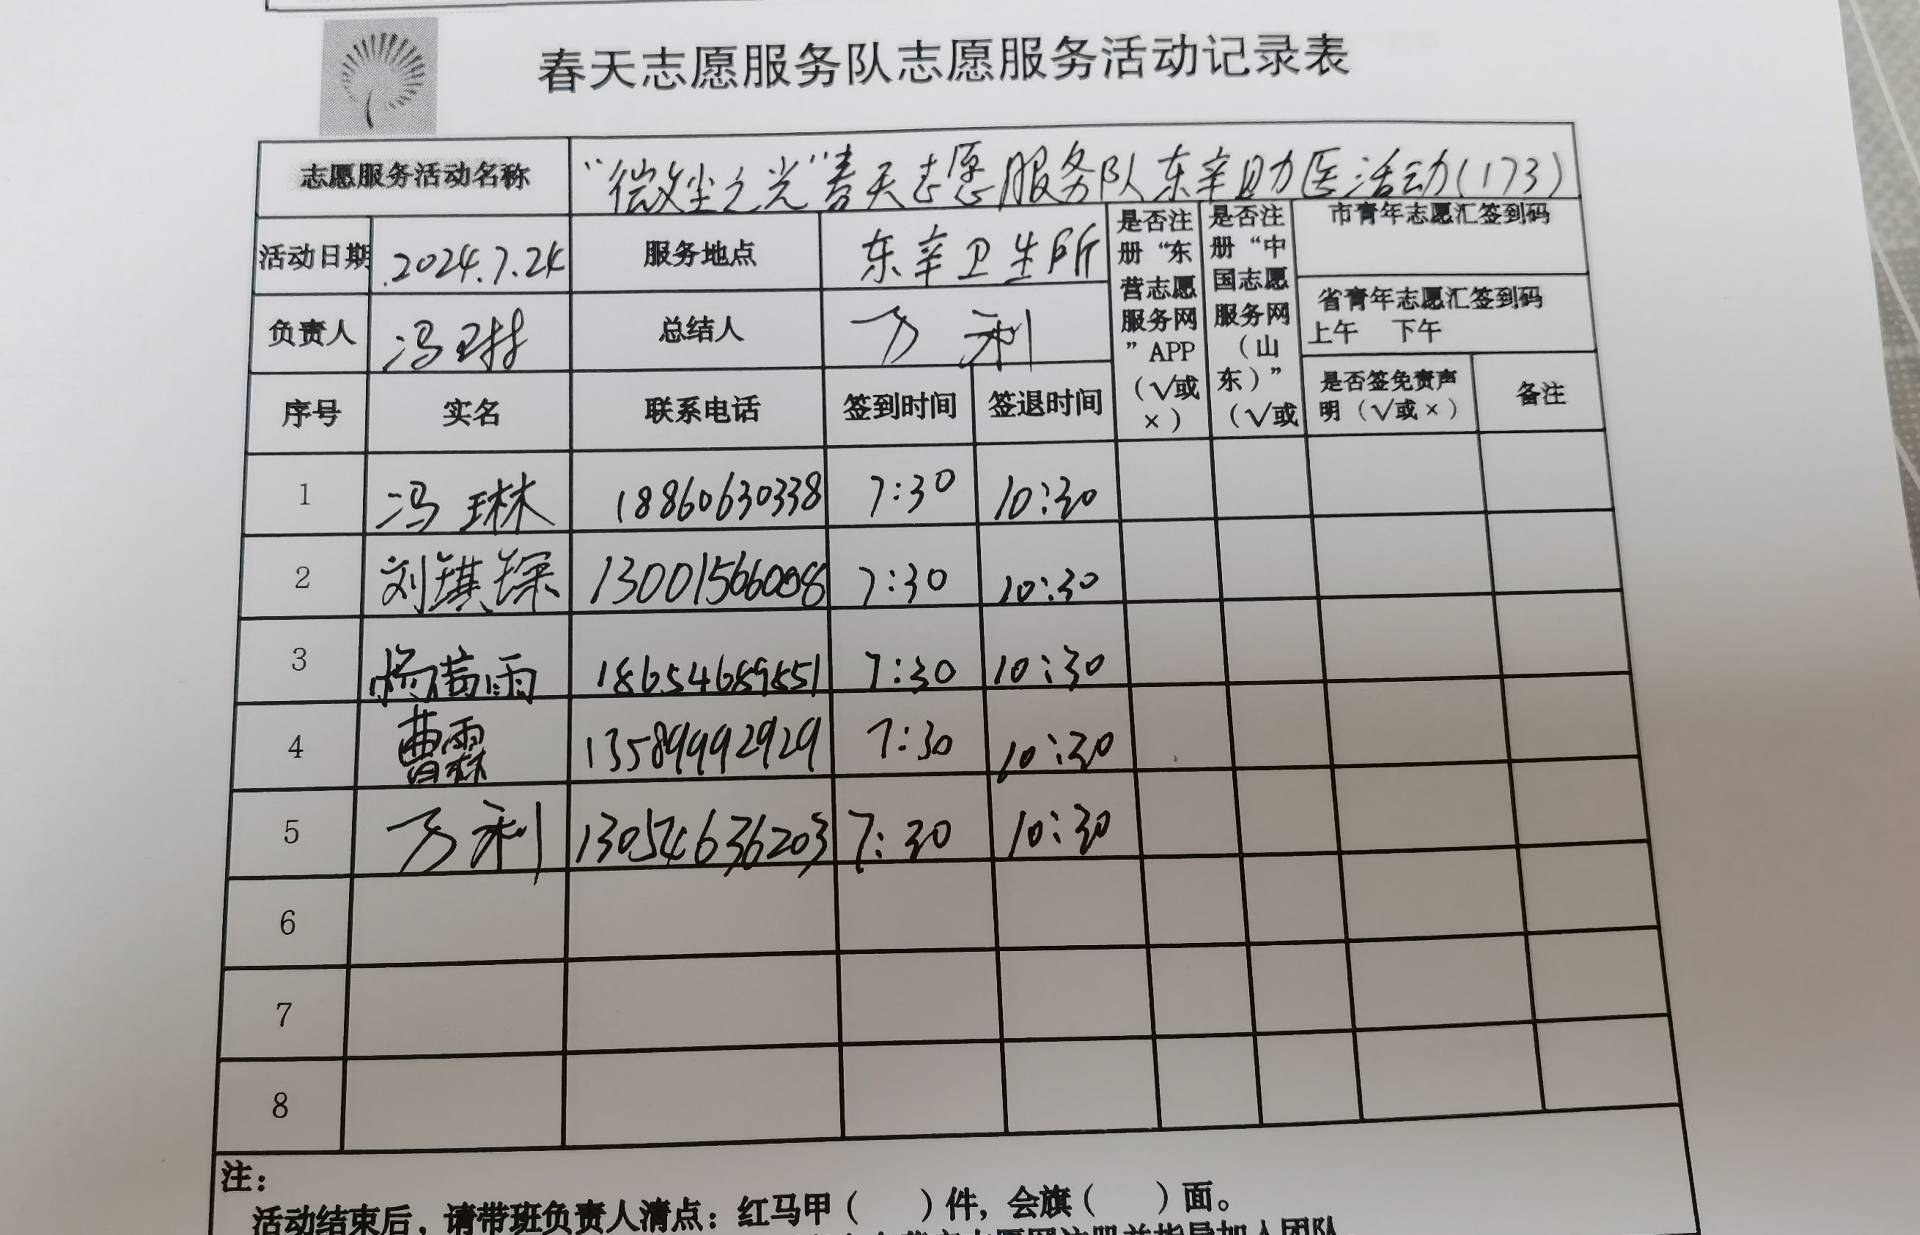 春天志愿服务队志愿服务活动记录表
志愿服务活动名称 “微尘之光”春天志愿服务队东辛助医活动(173)
活动日期 2024.7.24 服务地点 东辛卫生所
是否注册“东营志愿服务网”APP（√或×）
是否注册“中国志愿服务网（山东）”（√或
市青年志愿汇签到码
省青年志愿汇签到码
上午 下午
负责人 冯琳 总结人 万利
序号 实名 联系电话 签到时间 签退时间 是否签免责声明（√或×） 备注
1 冯琳 18860630338 7:30 10:30
2 刘琪琛 13001566008 7:30 10:30
3 杨茜雨 18654689551 7:30 10:30
4 曹霖 13589992929 7:30 10:30
5 万利 13054636203 7:30 10:30
6
7
8
注：
活动结束后，请带班负责人清点：红马甲（ ）件，会旗（ ）面。